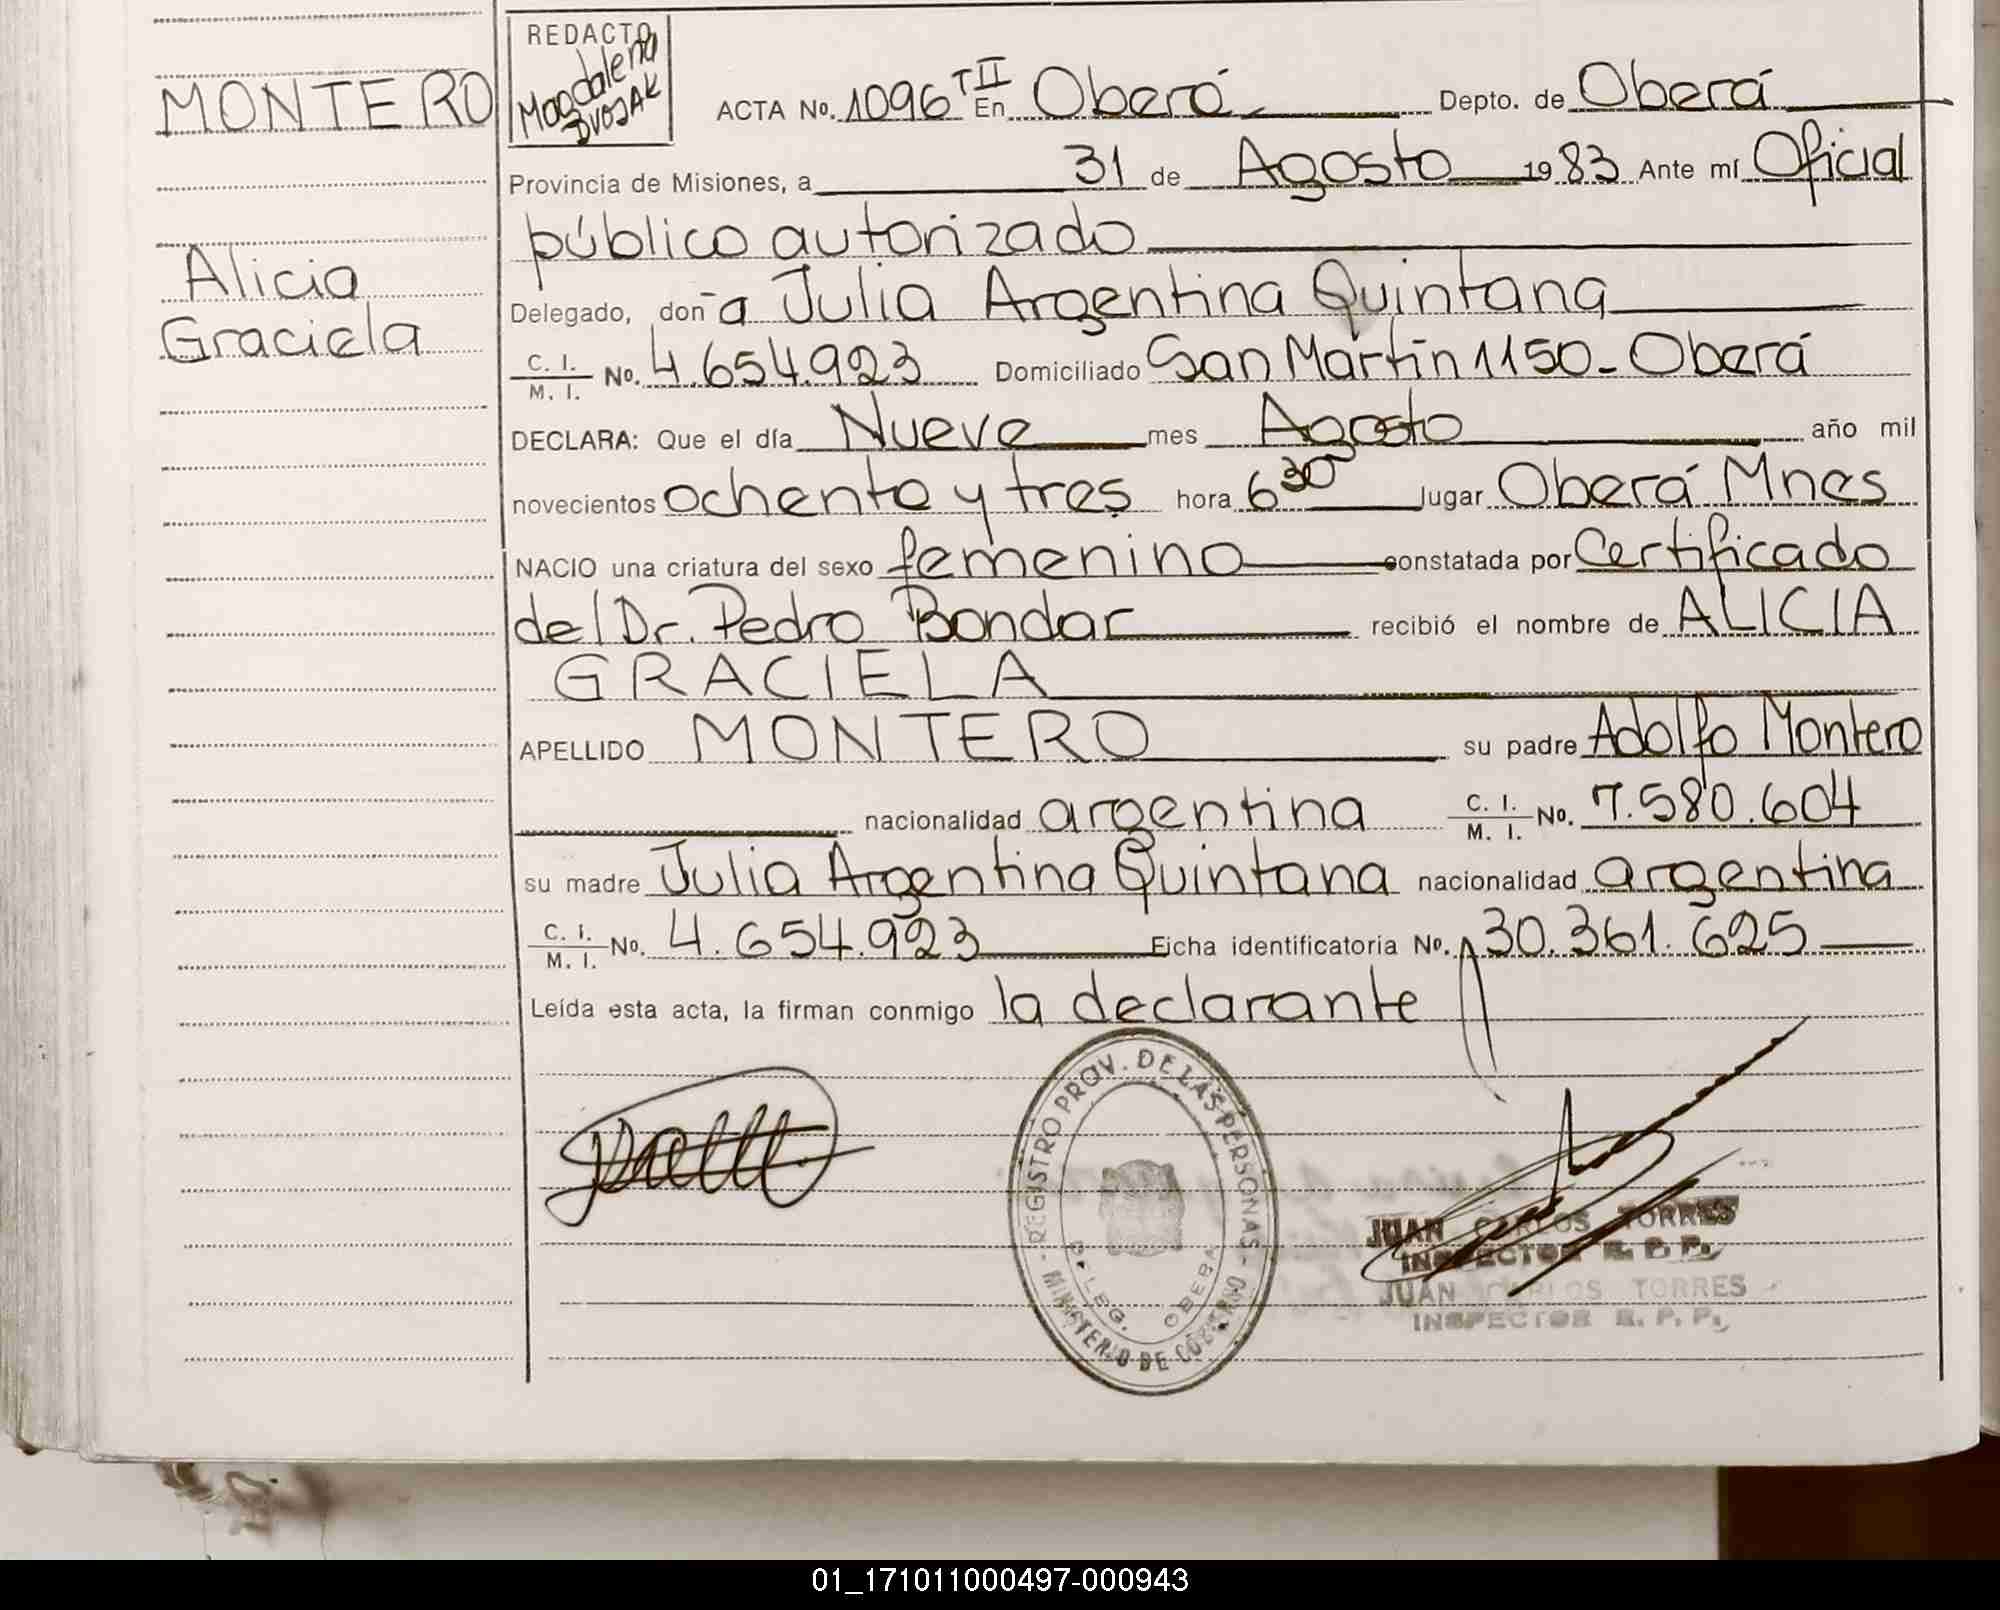 MONTERO
Alicia
Graciela
REDACTO
Magdalena
DVOJAK
ACTA No. 1096 TII En Oberá Depto. de Oberá
Provincia de Misiones, a 31 de Agosto 1983 Ante mí Oficial
público autorizado
Delegado, doña Julia Argentina Quintana
C. I. / M. I. No. 4.654.923 Domiciliado San Martín 1150_ Oberá
DECLARA: Que el día Nueve mes Agosto año mil
novecientos ochenta y tres hora 6 30 lugar Oberá Mnes
NACIO una criatura del sexo femenino constatada por Certificado
del Dr. Pedro Bondar recibió el nombre de ALICIA
GRACIELA
APELLIDO MONTERO su padre Adolfo Montero
nacionalidad argentina C. I. / M. I. No. 7.580.604
su madre Julia Argentina Quintana nacionalidad argentina
C. I. / M. I. No. 4.654.923 Ficha identificatoria No. 30.361.625
Leída esta acta, la firman conmigo la declarante
REGISTRO PROV. DE LAS PERSONAS - MINISTERIO DE GOBIERNO -
DELEG. OBERA
JUAN CARLOS TORRES
INSPECTOR R. P. P.
JUAN CARLOS TORRES
INSPECTOR R. P. P.
01_171011000497-000943